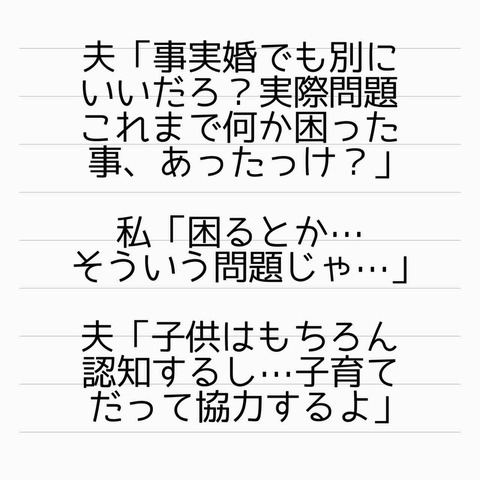 夫「事実婚でも別に
いいだろ？実際問題
これまで何か困った
事、あったっけ？」
私「困るとか…
そういう問題じゃ…」
夫「子供はもちろん
認知するし…子育て
だって協力するよ」